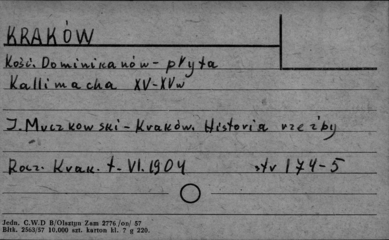 KRAKÓW
Kość. Dominikanów - płyta
Kallimacha XV-XVw
J. Muczkowski - Kraków. Historia rzeźby
Rocz. Krak. t - VI. 1904 str 174-5
Jedn. C.W.D B/Olsztyn Zam 2776 /on/ 57
Bltk. 2563/57 10.000 szt. karton kl. ? g 220.